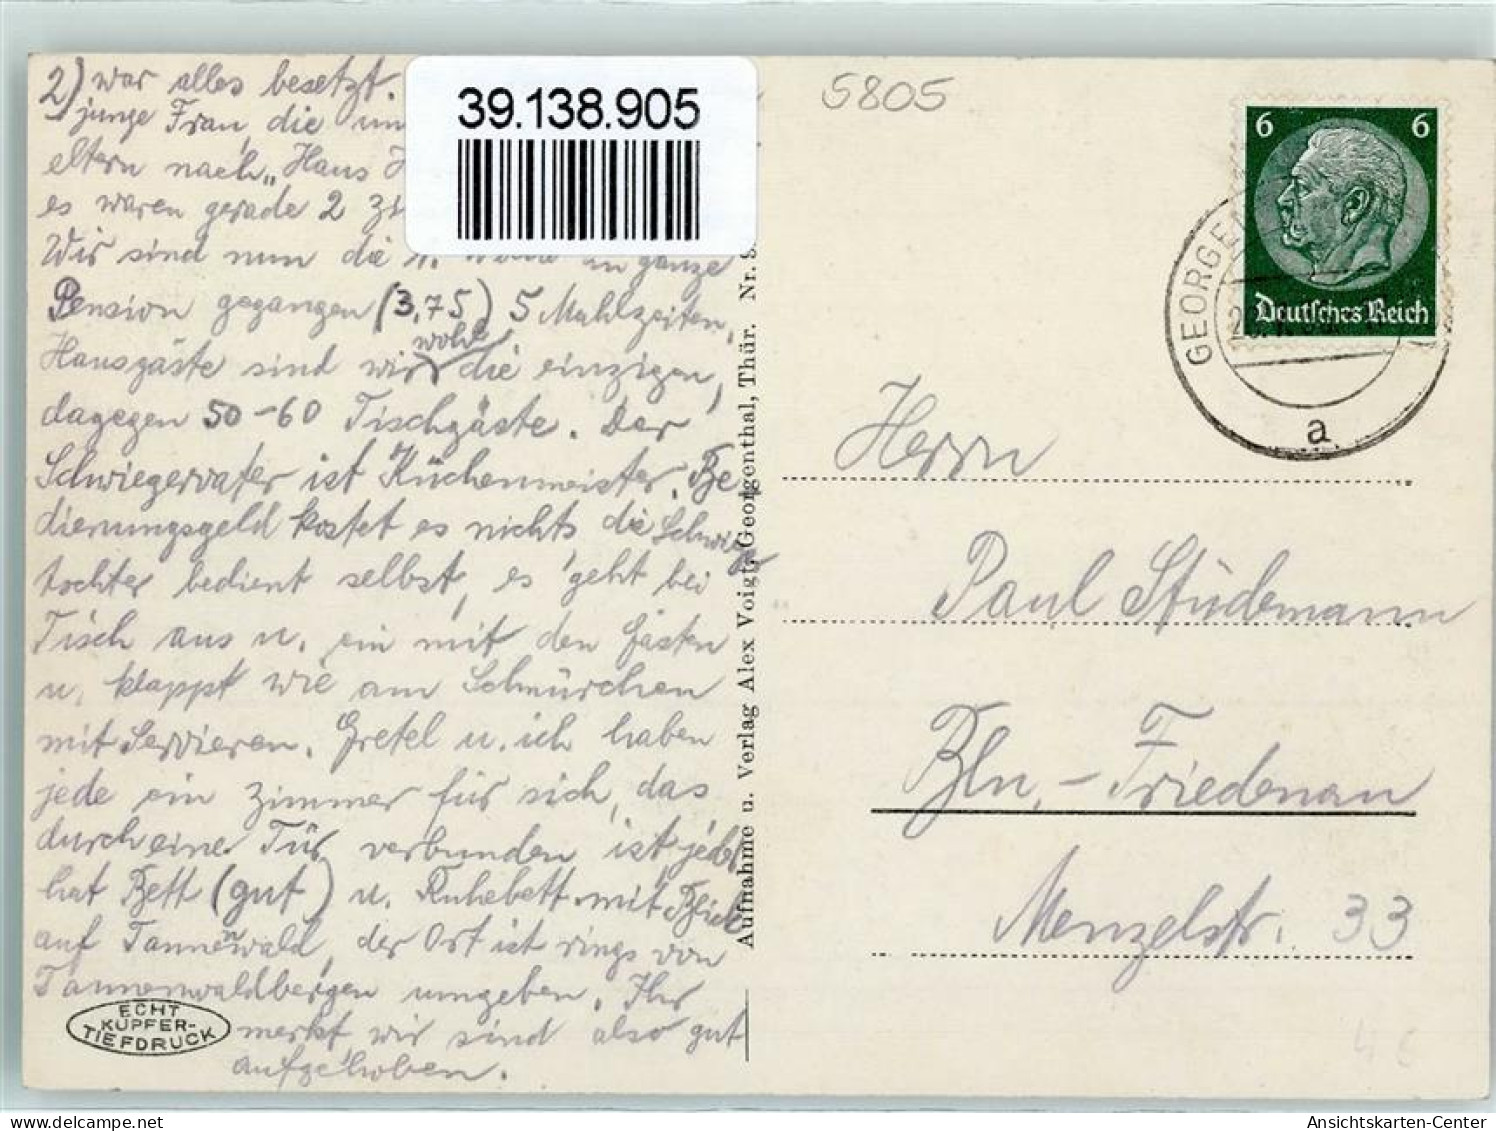 2) war alles besetzt.
junge Frau, die
eltern nach „Haus
es waren gerade 2
Wir sind nun die 1. Woche in ganze
Pension gegangen (3,75) 5 Mahlzeiten,
wohl
Hausgäste sind wir die einzigen,
dagegen 50-60 Tischgäste. Der
Schwiegervater ist Küchenmeister. Be
dienungsgeld kostet es nichts die Schwieger
tochter bedient selbst, es geht bei
Tisch aus u. ein mit den Gästen
u. klappt wie am Schnürchen
mit Servieren. Gretel u. ich haben
jede ein Zimmer für sich, das
durch eine Tür verbunden ist, jedes
hat Bett (gut) u. Ruhebett mit Blick
auf Tannenwald, der Ort ist rings von
Tannenwaldbergen umgeben. Ihr
merkt wir sind also gut
aufgehoben.
ECHT
KUPFER-
TIEFDRUCK
39.138.905
Aufnahme u. Verlag Alex Voigt, Georgenthal, Thür. Nr.
5805
6 6
Deutsches Reich
GEORGEN
a
Herrn
Paul Stüdemann
Bln.-Friedenau
Menzelstr. 33
delcampe.net
Ansichtskarten-Center